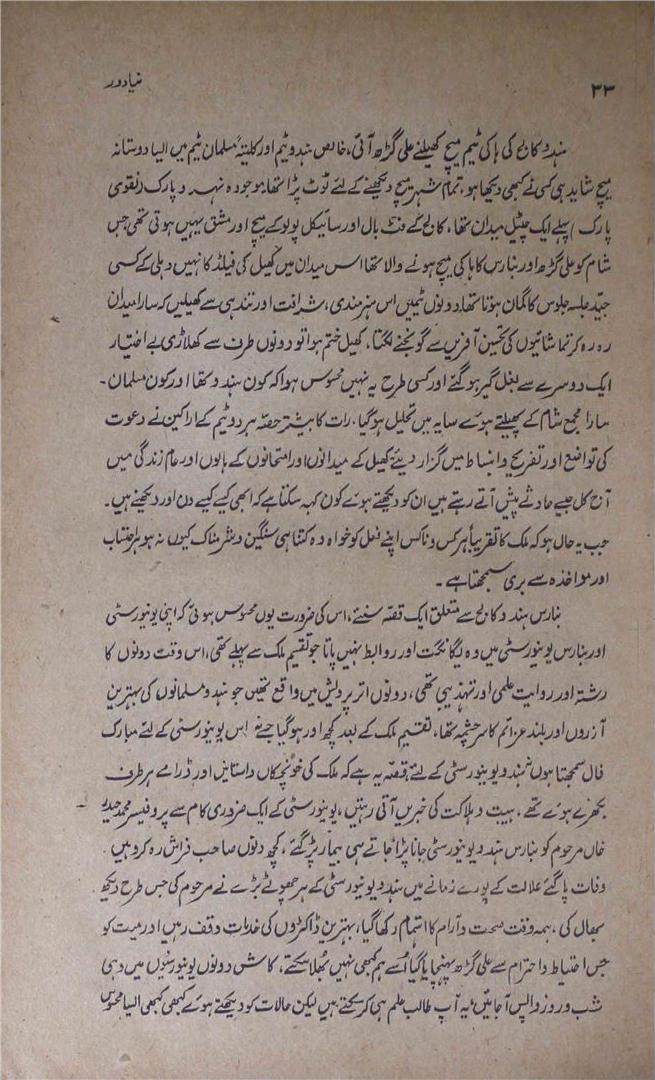 نیا دور
۳۳
ہندو کالج کی ہاکی ٹیم میچ کھیلنے علی گڑھ آئی، خالص ہندو ٹیم اور کلیتہً مسلمان ٹیم میں الیسا دوستانہ
میچ شاید ہی کسی نے کبھی دیکھا ہو، تمام شہر میچ دیکھنے کے لئے ٹوٹ پڑا تھا، موجودہ نہرو پارک (نقوی
پارک) پہلے ایک چٹیل میدان تھا، کالج کے فٹ بال اور سائیکل پولو کے میچ اور مشق یہیں ہوتی تھی جس
شام کو علی گڑھ اور بنارس کا ہاکی میچ ہونے والا تھا اس میدان میں کھیل کی فیلڈ کا نہیں دہلی کے کسی
جیّد جلسہ جلوس کا گمان ہوتا تھا، دونوں ٹیمیں اس ہنرمندی، شرافت اور تندہی سے کھیلیں کہ سارا میدان
رہ رہ کر تماشائیوں کی تحسین آفریں سے گونجنے لگتا، کھیل ختم ہوا تو دونوں طرف سے کھلاڑی بے اختیار
ایک دوسرے سے بغل گیر ہو گئے اور کسی طرح یہ نہیں محسوس ہوا کہ کون ہندو تھا اور کون مسلمان۔
سارا مجمع شام کے پھیلتے ہوئے سایہ میں تحلیل ہو گیا. رات کا بیشتر حصّہ ہر دو ٹیم کے اراکین نے دعوت
کی تواضع اور تفریح و انبساط میں گزار دیئے کھیل کے میدانوں اور امتحانوں کے ہالوں اور عام زندگی میں
آج کل جیسے حادثے پیش آتے رہتے ہیں ان کو دیکھتے ہوئے کون کہہ سکتا ہے کہ ابھی کیسے کیسے دن اور دیکھنے ہیں۔
جب یہ حال ہو کہ ملک کا تقریباً ہر کس و ناکس اپنے فعل کو خواہ وہ کتنا ہی سنگین و شرمناک کیوں نہ ہو ہر احتساب
اور مواخذہ سے بری سمجھتا ہے۔
بنارس ہندو کالج سے متعلق ایک قصّہ سنئے، اس کی ضرورت یوں محسوس ہوئی کہ اپنی یونیورسٹی
اور بنارس یونیورسٹی میں وہ یگانگت اور روابط نہیں پاتا جو تقیم ملک سے پہلے تھی، اس وقت دونوں کا
رشتہ اور روایت علمی اور تہذیبی تھی، دونوں اتر پردیش میں واقع تھیں جو ہندو مسلمانوں کی بہترین
آرزوں اور بلند عزائم کا سرچشمہ تھا، تقسیم ملک کے بعد کچھ اور ہو گیا جسے نہ اس یونیورسٹی کے لئے مبارک
فال سمجھتا ہوں نہ ہندو یونیورسٹی کے لئے، قصّہ یہ ہے کہ ملک کی خونچکاں داستانیں اور ڈرامے ہر طرف
بکھرے ہوئے تھے، ہیبت و ہلاکت کی خبریں آتی رہتیں، یونیورسٹی کے ایک ضروری کام سے پروفیسر محمد حیدر
خاں مرحوم کو بنارس ہندو یونیورسٹی جانا پڑا جاتے ہی بیمار پڑ گئے، کچھ دنوں صاحب فراش رہ کر وہیں
وفات پا گئے علالت کے پورے زمانے میں ہندو یونیورسٹی کے ہر چھوٹے بڑے نے مرحوم کی جس طرح دیکھ
بھال کی، ہمہ وقت صحت و آرام کا اہتمام رکھا گیا، بہترین ڈاکٹروں کی خدمات وقف رہیں اور میت کو
جس احتیاط و احترام سے علی گڑھ پہنچایا گیا اسے ہم کبھی نہیں بھلا سکتے، کاش دونوں یونیورسٹیوں میں وہی
شب و روز واپس آ جائیں، یہ آپ طالب علم ہی کر سکتے ہیں لیکن حالات کو دیکھتے ہوئے کبھی کبھی الیسا محسوس